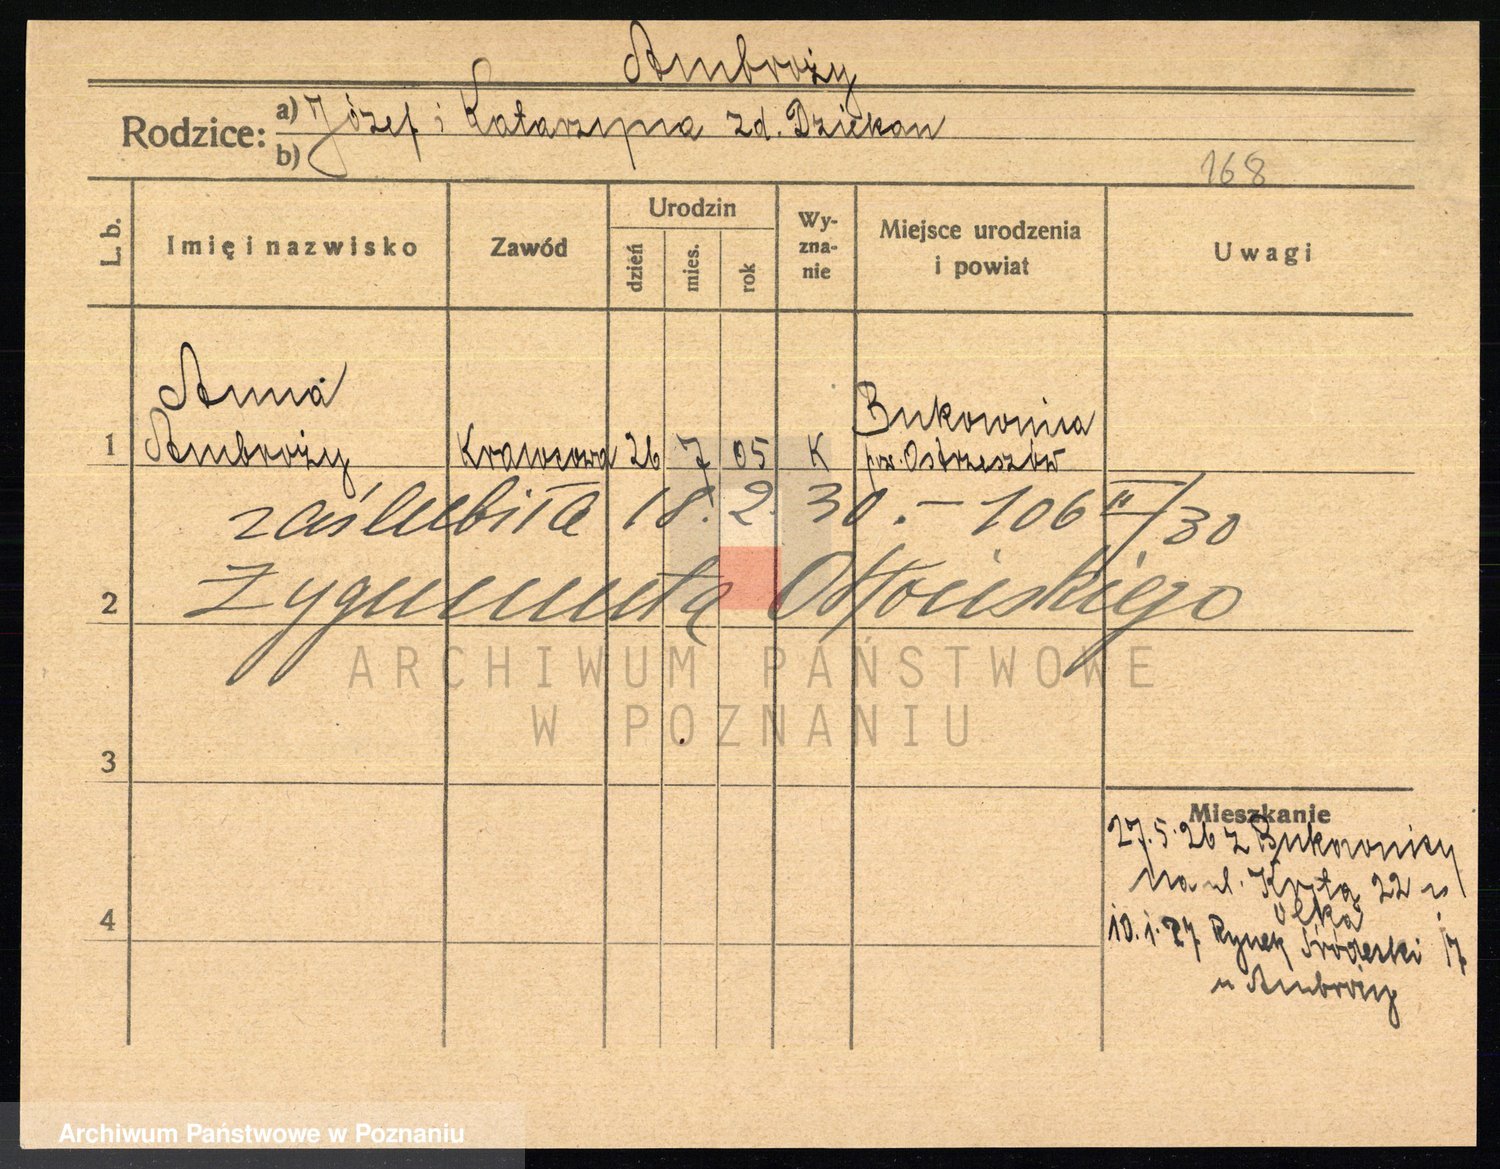 Ambroży
Rodzice: a) Józef i Katarzyna zd. Dziekan
b)
168
L. b.
Imię i nazwisko
Zawód
Urodzin
dzień
mies.
rok
Wy-
zna-
nie
Miejsce urodzenia
i powiat
Uwagi
Anna
1 Ambroży Krawcowa 26 7 05 K Bukownica
pow. Ostrzeszów
zaślubiła 18. 2. 30. – 106 II/30
2 Zygmunta
ARCHIWUM PAŃSTWOWE
W POZNANIU
3
Mieszkanie
27.5.26 z Bukownicy
na ul. Kręta 22 u
4
10.1.27 Rynek Śródecki 17
u Ambroży
Archiwum Państwowe w Poznaniu